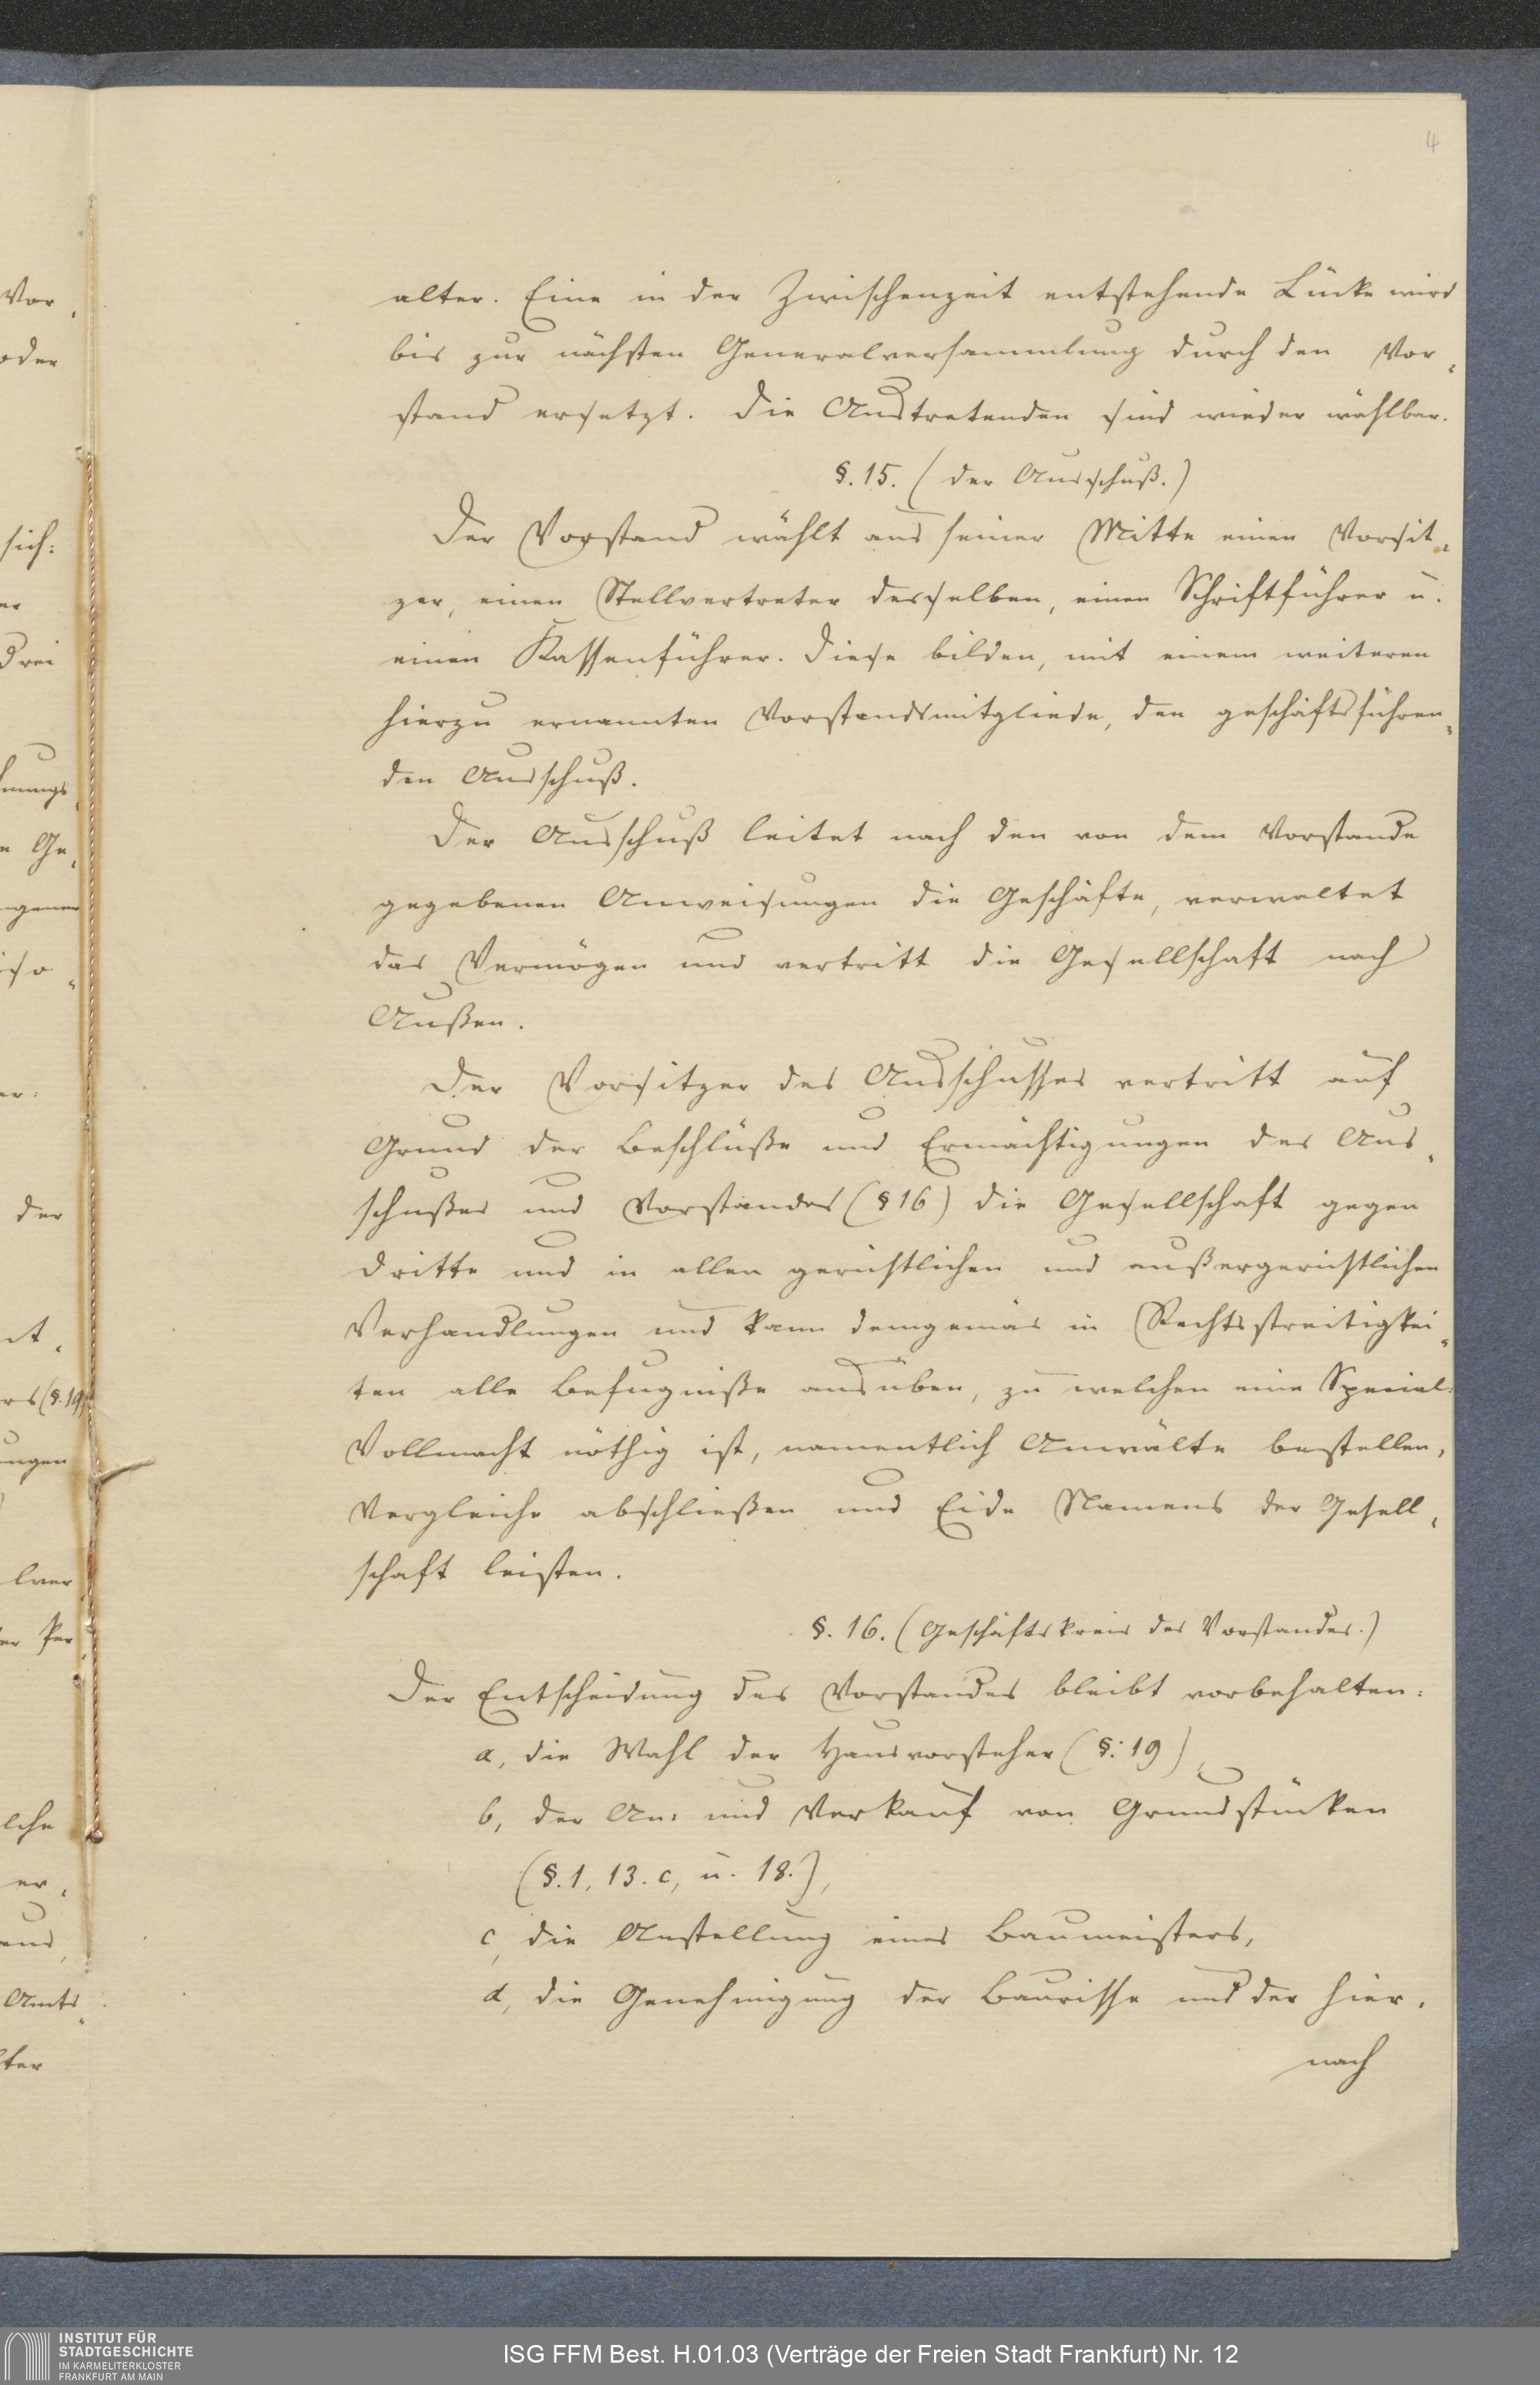 4
alter. Eine in der Zwischenzeit entstehende Lücke wird
bis zur nächsten Generalversammlung durch den Vor-
stand ersetzt. Die Austretenden sind wieder wählbar.
§. 15. (Der Ausschuß.)
Der Vorstand wählt aus seiner Mitte einen Vorsit-
zer, einen Stellvertreter desselben, einen Schriftführer u.
einen Kassenführer. Diese bilden, mit einem weiteren
hierzu ernannten Vorstandsmitgliede, den geschäftsführen-
den Ausschuß.
Der Ausschuß leitet nach den von dem Vorstande
gegebenen Anweisungen die Geschäfte, verwaltet
das Vermögen und vertritt die Gesellschaft nach
Außen.
Der Vorsitzer des Ausschusses vertritt auf
Grund der Beschlüße und Ermächtigungen des Aus-
schußes und Vorstandes (§ 16) die Gesellschaft gegen
Dritte und in allen gerichtlichen und außergerichtlichen
Verhandlungen und kann demgemäs in Rechtsstreitigkei-
ten alle Befugniße ausüben, zu welchen eine Special-
Vollmacht nöthig ist, namentlich Anwälte bestellen,
Vergleiche abschließen und Eide Namens der Gesell-
schaft leisten.
§. 16. (Geschäftskreis des Vorstandes.)
Der Entscheidung des Vorstandes bleibt vorbehalten:
a, die Wahl der Hausvorsteher (§. 19),
b, der An- und Verkauf von Grundstücken
(§. 1, 13. c, u. 18.),
c, die Anstellung eines Baumeisters,
d, die Genehmigung der Baurisse und der hier-
nach
Vor-
oder
sich:
drei
der
(§. 19)
Amts-
INSTITUT FÜR
STADTGESCHICHTE
IM KARMELITERKLOSTER
FRANKFURT AM MAIN
ISG FFM Best. H.01.03 (Verträge der Freien Stadt Frankfurt) Nr. 12